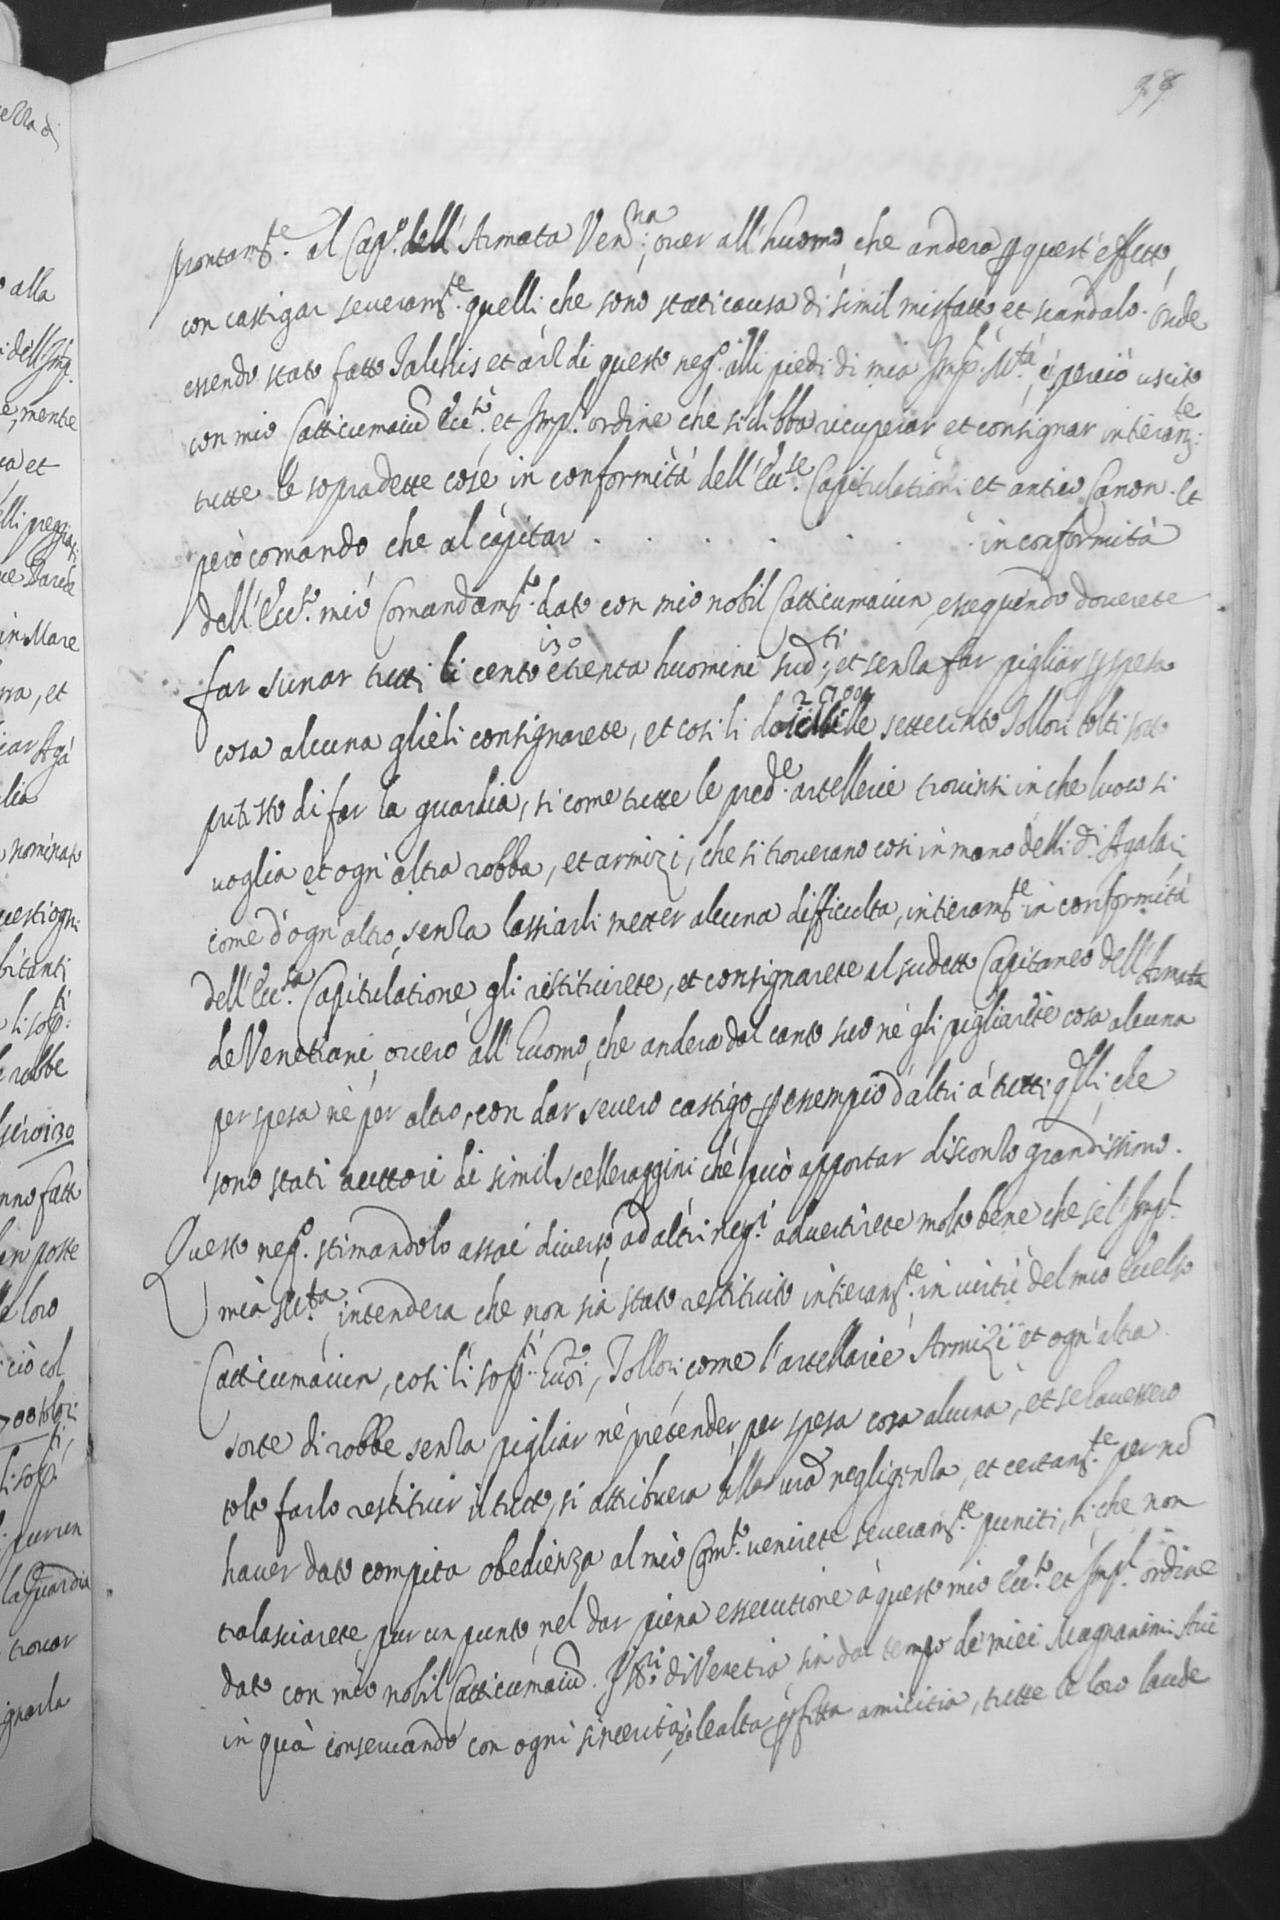 98
prontam.te al Cap.o dell'Armata Ven.na, over all'huomo, che anderà p quest'effetto,
con castigar severam.te quelli che sono stati causa di simil misfatto et scandalo. Onde
essendo stato fatto Talchis et arz di questo neg.o alli piedi di mia Imp.l M.tà, è perciò uscito
con mio Catticumaiu Ecc.so et Imp.l ordine che si debba ricuperar et consignar interam.te
tutte le sopradette cose in conformità dell'Ecc.se Capitulationi et antico Canon. Et
però comando, che al capitar . . . . . . . in conformità
dell'Ecc.so mio Comandam.to dato con mio nobil Catticumaiun essequendo doverete
far sunar tutti li cento etrenta huomini sud.ti, et senza far pigliar p spesa
130
cosa alcuna glieli consignarete, et cosi li doi mille settecento Tollori tolti sotto
2700
pretesto di far la guardia, si come tutte le pred.e artellerie trovinsi in che luoco si
voglia et ogn'altra robba, et armizi, che si troverano cosi in mano delli d.i Agalari,
come d'ogn'altro, senza lassiarli metter alcuna difficulta, interam.te in conformità
dell'Ecc.sa Capitulatione gli restituirete, et consignarete al sudetto Capitaneo dell'Armata
de Venetiani, overo all'Huomo, che anderà dal canto suo nè gli pigliarete cosa alcuna
per spesa nè per altro, con dar severo castigo p essempio d'altri à tutti q.lli, che
sono stati auttori di simil scelleraggini che può apportar disconzo grandissimo.
Questo neg.o stimandolo assai diverso ad altri neg.i advertirete molto bene che se l'Imp.l
mia M.tà intenderà che non sia stato restituito interam.te in virtù del mio Eccelso
Catticumaiun, cosi li sop.ti Huoi, Tollori, come l'artellarie Armizi et ogn'altra
sorte di robbe senza pigliar nè pretender per spesa cosa alcuna, et se havessero
tolto farlo restituir il tutto, si attribuerà alla vra negligenza, et certam.te per nõ
haver dato compita obedienza al mio Com.to venirete severam.te puniti, si che non
tralasciarete pur un punto nel dar piena essecutione à questo mio Ecc.so et Imp.l ordine
dato con mio nobil Catticumaiu. I S.ri di Venetia sin dal tempo de miei Magnanimi Avi
in quà conservando con ogni sincerità, et lealtà pfetta amicitia, tutte le loro laude